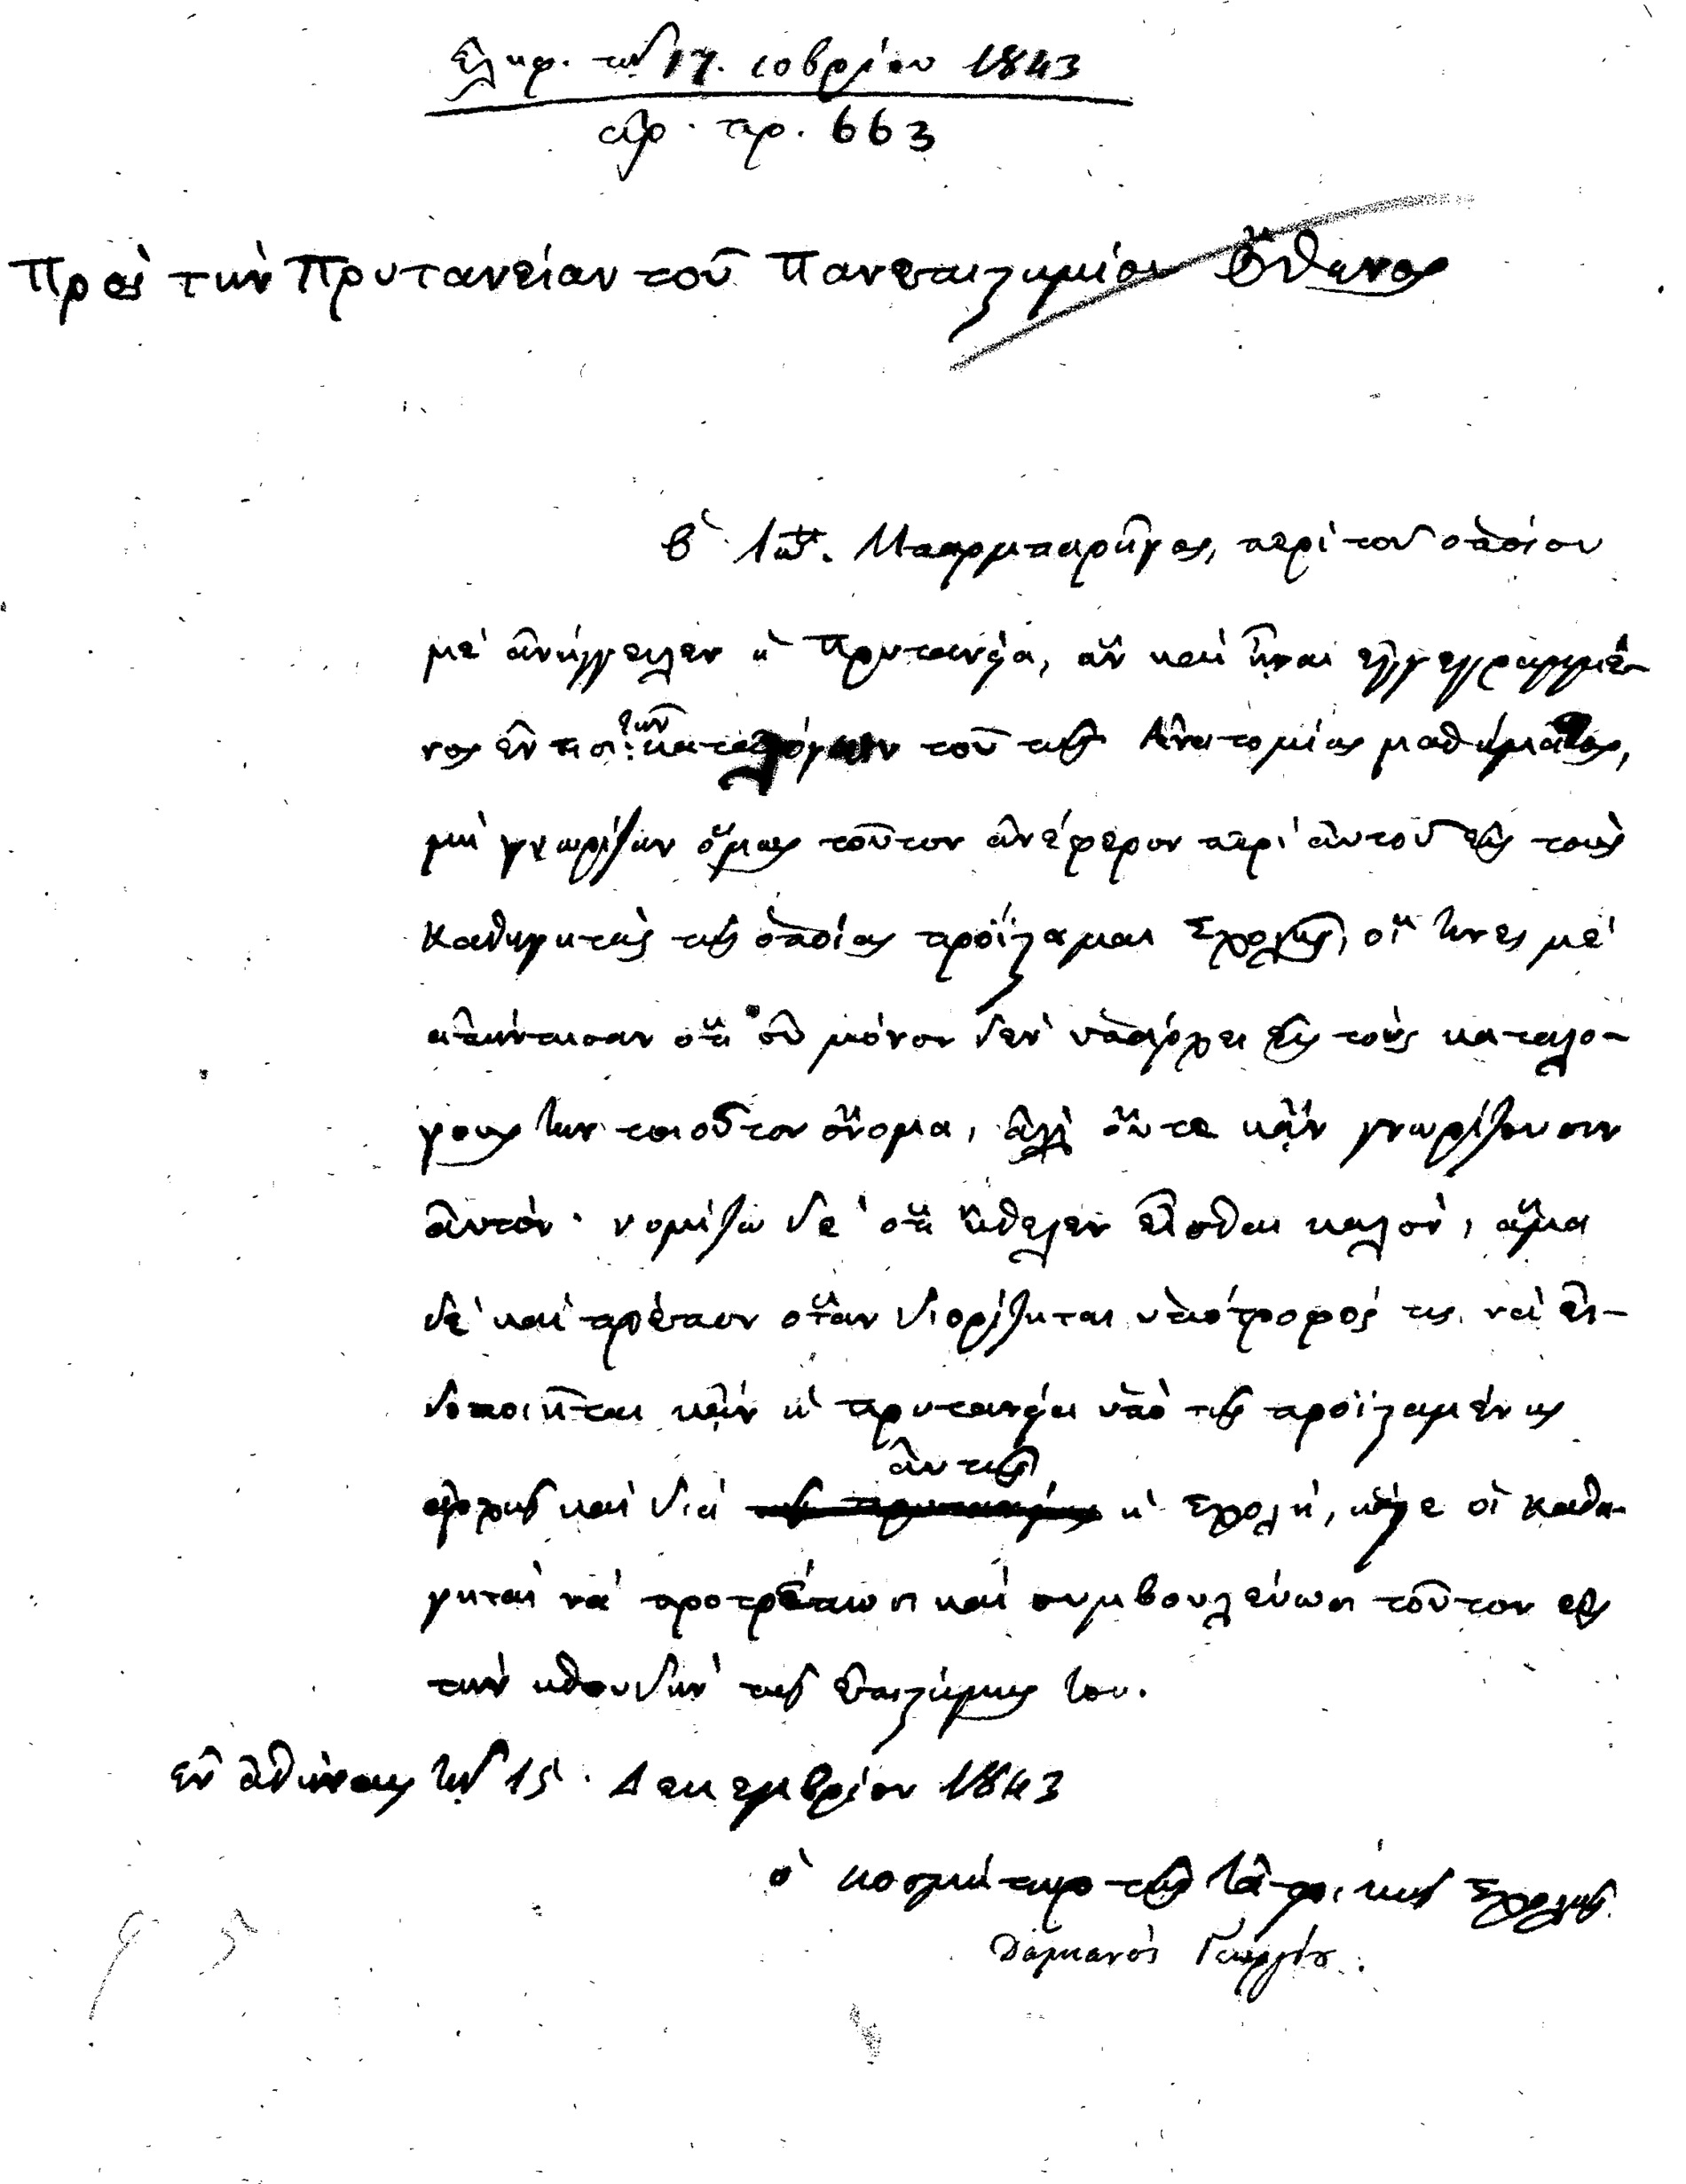 ἐλήφ. τὴν 17. 10βρίου 1843
ἀρ. πρ. 663
Πρὸς τὴν Πρυτανείαν τοῦ Πανεπιστημίου Ὄθωνος
Ὁ Ἰω. Μπαρμπαρῆγος, περὶ τοῦ ὁποίου
μὲ ἀνήγγειλεν ἡ Πρυτανεία, ἂν καὶ ἦναι ἐγγεγραμμέ-
νος ἔν τισι τῶν καταλόγων τοῦ τῆς Ἀνατομίας μαθήματος,
μὴ γνωρίζων ὅμως τοῦτον ἀνέφερον περὶ αὐτοῦ εἰς τοὺς
Καθηγητὰς τῆς ὁποίας προΐσταμαι Σχολῆς, οἵτινες μὲ
ἀπήντησαν ὅτι οὐ μόνον δὲν ὑπάρχει εἰς τοὺς καταλό-
γους των τοιοῦτον ὄνομα, ἀλλ' οὔτε κἂν γνωρίζουσιν
αὐτόν· νομίζω δὲ ὅτι ἤθελεν εἶσθαι καλὸν, ἅμα
δὲ καὶ πρέπον ὅταν διορίζηται ὑπότροφός τις νὰ εἰ-
δοποιῆται κἂν ἡ πρυτανεία ὑπὸ τῆς προϊσταμένης
ἀρχῆς καὶ διὰ αὐτῆς ἡ Σχολὴ, ὥστε οἱ Καθη-
γηταὶ νὰ προτρέπωσι καὶ συμβουλεύωσι τοῦτον εἰς
τὴν σπουδὴν τῆς ἐπιστήμης του.
ἐν Ἀθήναις τὴν 15 Δεκεμβρίου 1843
ὁ κοσμήτωρ τῆς Ἰατρικῆς Σχολῆς
Δαμιανὸς Γεωργίου.